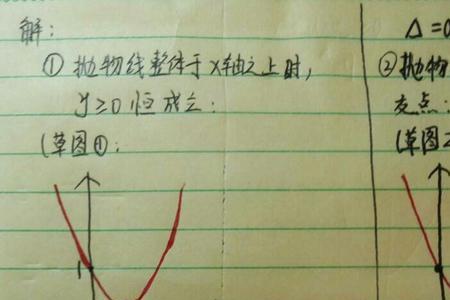 解:
①抛物线整体于x轴之上时,
y≥0恒成立:
(草图①:
1
Δ=0
②抛物
交点:
(草图2